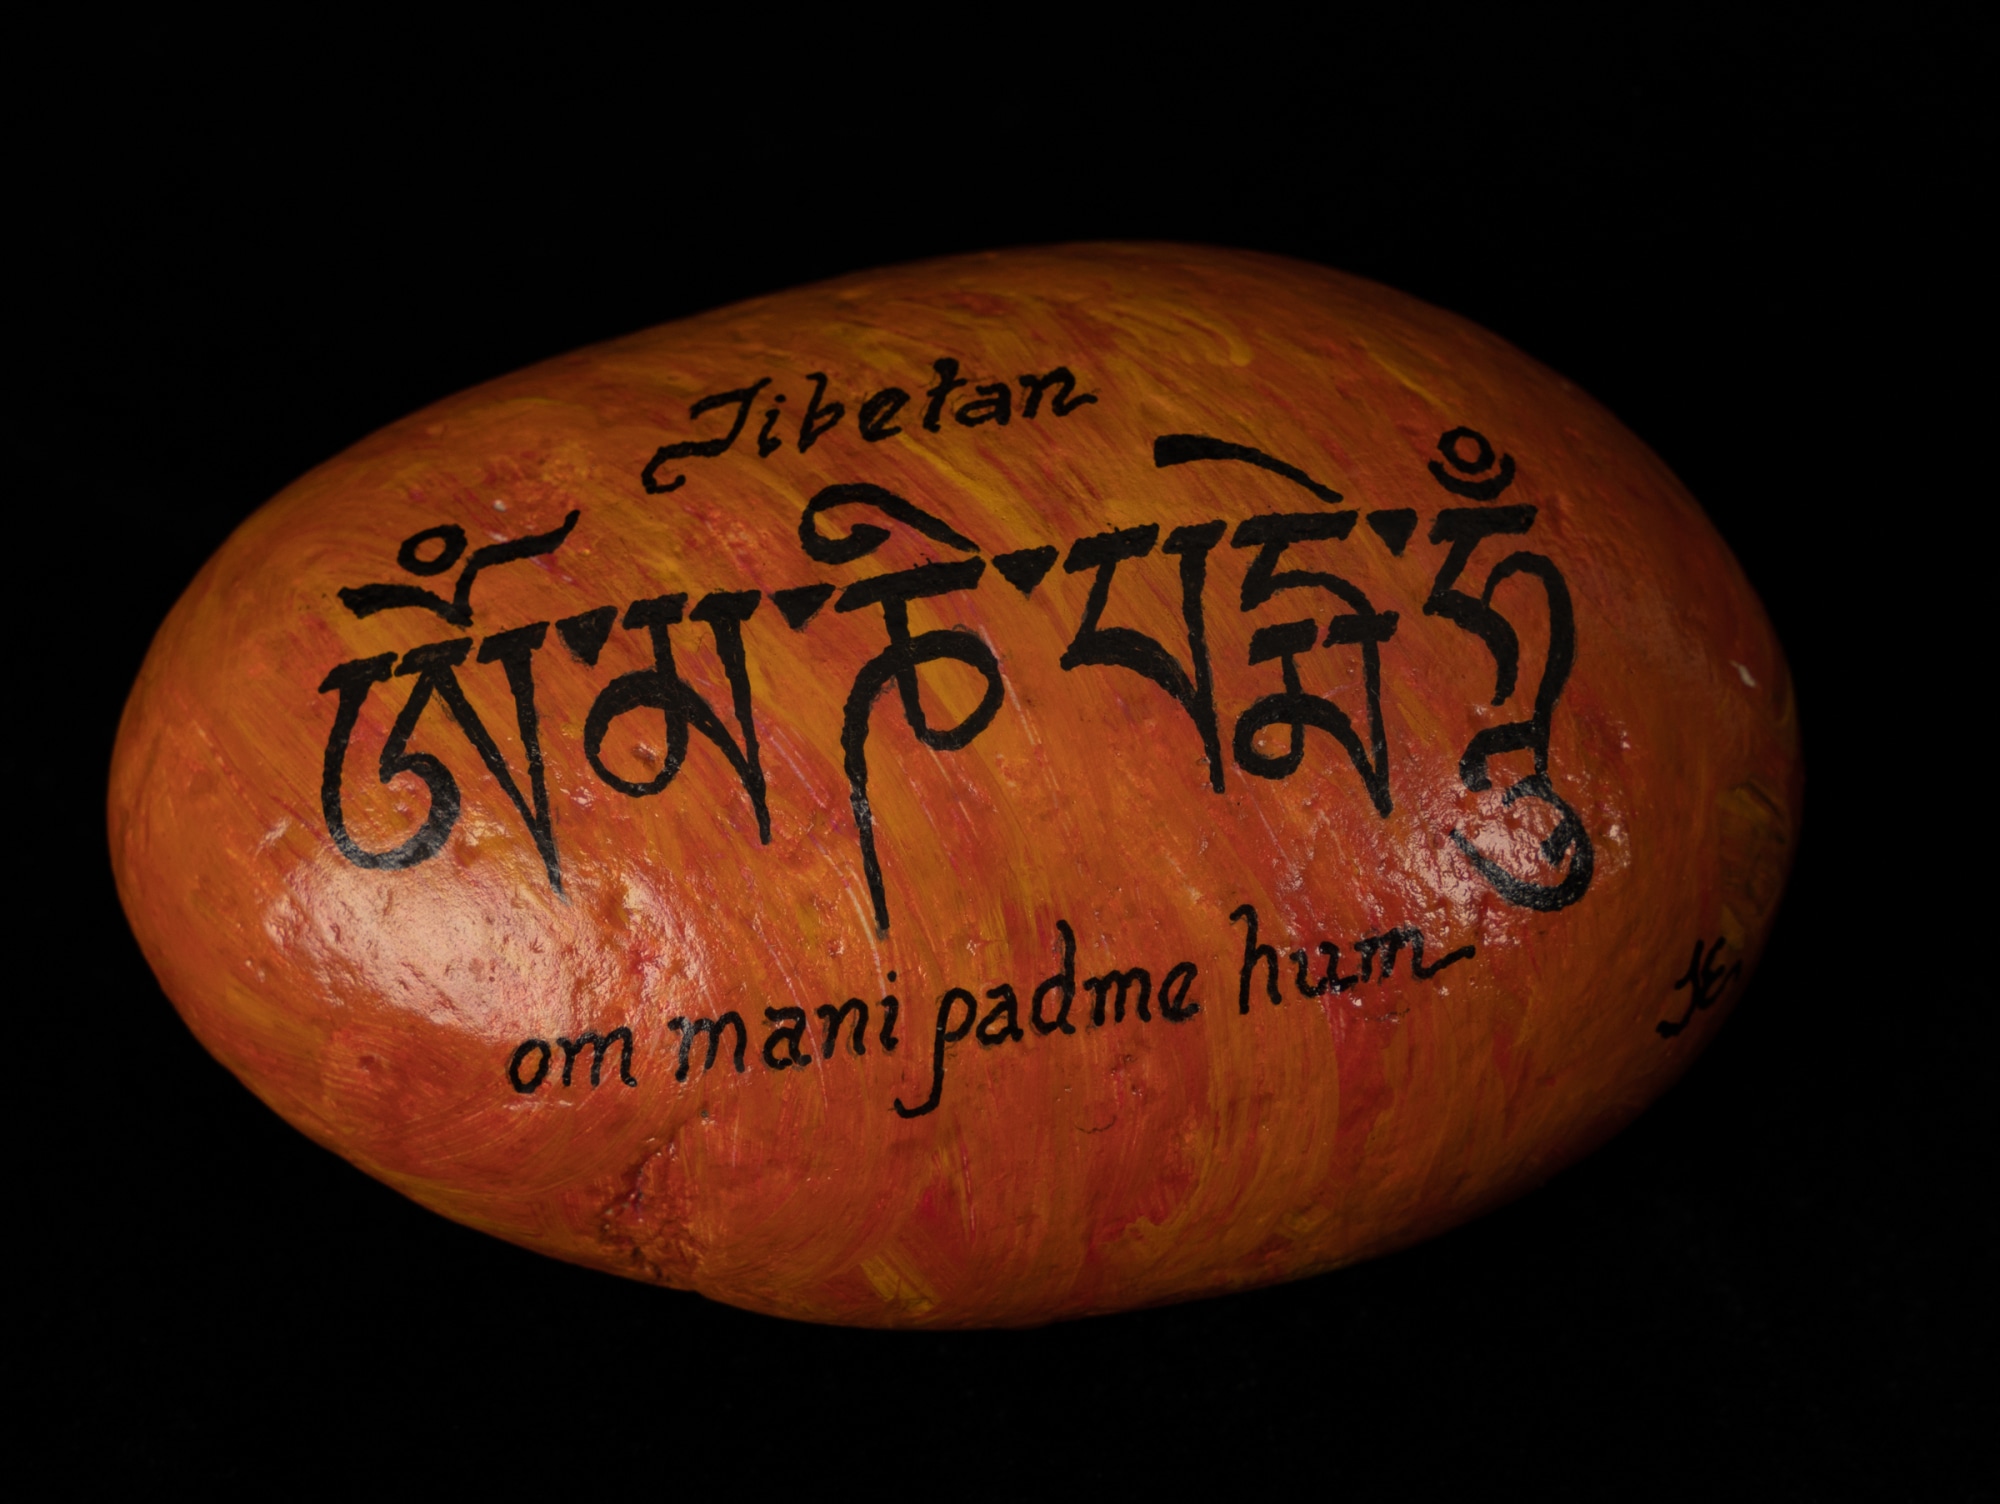 Tibetan
ཨོཾ་མ་ཎི་པདྨེ་ཧཱུྃ
om mani padme hum
JE